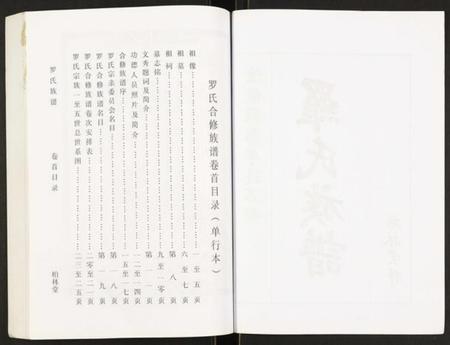 罗氏合修族谱卷首目录（单行本）
祖像……………………一至五页
祖墓……………………六至七页
祖祠……………………第八页
墓志铭……………………九至一零页
文秀题词及简介……………………第一一页
功德人员照片及简介……………………一二至一四页
合修族谱序……………………一五至一七页
罗氏宗主委员会名目……………………第一八页
罗氏合修族谱名目……………………第一九页
罗氏合修族谱卷次安排表……………………二零至二一页
罗氏宗族一至五世总世系图……………………二三至二五页
罗氏族谱
卷首目录
柏林堂
羅氏族譜